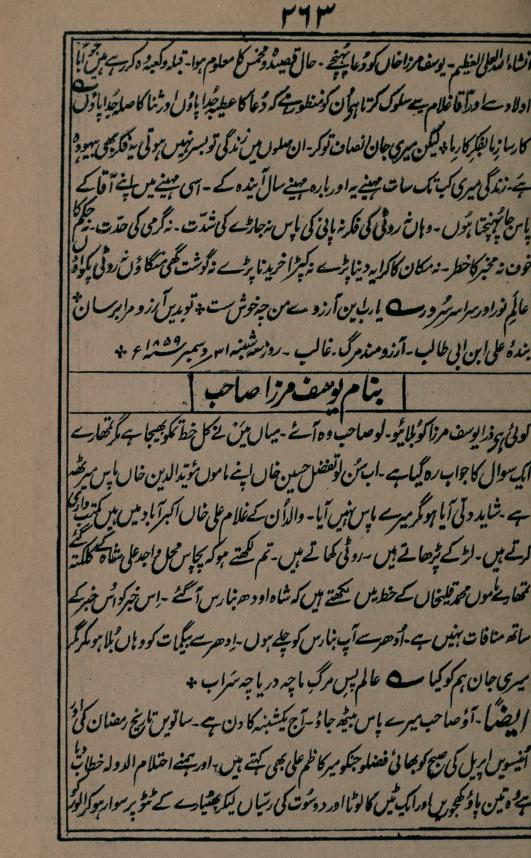 ۲۶۳
انشاء اللہ العلی العظیم۔ یوسف مرزا خاں کو دعا پہنچے۔ حال قصیدہ و مخمس کا معلوم ہوا۔ قبلہ و کعبہ وہ کر رہے ہیں جو آبا
اولاد سے اور آقا غلام سے سلوک کرتا ہے ان کو منظور ہے کہ دعا کا عطیہ جدا پاؤں اور ثنا کا صلہ جدا پاؤں
کار ساز ما بفکر کار ما * لیکن میری جان انصاف تو کر۔ ان صلوں میں زندگی تو بسر نہیں ہوتی یہ فکر بھی بیہودہ
ہے۔ زندگی میری کب تک سات مہینے یہ اور بارہ مہینے سال آیندہ کے۔ اسی مہینے میں اپنے آقا کے
پاس جا پہنچتا ہوں۔ وہاں نہ روٹی کی فکر نہ پانی کی پیاس نہ جاڑے کی شدت۔ نہ گرمی کی حدت۔ نہ حکم کا
خوف نہ مخبر کا خطر۔ نہ مکان کا کرایہ دینا پڑے نہ کپڑا خریدنا پڑے نہ گوشت گھی منگاؤں نہ روٹی پکواؤں
عالم نور اور سراسر سرور ؎ یارب این آرزوے من چہ خوش ست * تو بدین آرزو مرا برسان *
بندۂ علی ابن ابی طالب۔ آرزو مند مرگ۔ غالب۔ روز سہ شنبہ ۳۱ دسمبر ۱۸۵۹ء *
بنام یوسف مرزا صاحب
کوئی ہو ذرا یوسف مرزا کو بلائیو۔ لو صاحب وہ آئے۔ میاں میں نے کل خط تمکو بھیجا ہے مگر تمھارے
ایک سوال کا جواب رہ گیا ہے۔ اب سن لو تفضل حسین خاں اپنے ماموں مؤید الدین خاں پاس میرٹھ
ہے۔ شاید دلی آیا ہو گر میرے پاس نہیں آیا۔ والد ان کے غلام علی خاں اکبرآباد میں ہیں مکتب داری
کرتے ہیں۔ لڑکے پڑھاتے ہیں۔ روٹی کھاتے ہیں۔ تم لکھتے ہو کہ پچاس محل واجد علی شاہ کے کلکتہ گئے
تمھارے ماموں محمد قلیخاں کے خط میں لکھتے ہیں کہ شاہ اودھ بنارس آگئے۔ اس خبر کو اُس خبر کے
ساتھ منافات نہیں ہے۔ اُدھر سے آپ بنارس کو چلے ہوں۔ اِدھر سے بیگمات کو وہاں بلا ہو مگر گر
میری جان ہم کو کیا ؎ عالم پس مرگ ما چہ دریا چہ سراب *
ایضاً۔ آؤ صاحب میرے پاس بیٹھ جاؤ۔ آج یکشنبہ کا دن ہے۔ ساتویں تاریخ رمضان کی اور
انتیسویں اپریل کی صبح کو بھائی فضلو جنکو میر کاظم علی بھی کہتے ہیں اور ہمنے احتلام الدولہ خطاب دیا
ہے وہ تین پاؤ کھجوریں اور ایک ٹین کا لوٹا اور دو سوت کی رسیاں لیکر بھٹیارے کے ٹٹو پر سوار ہو کر الور